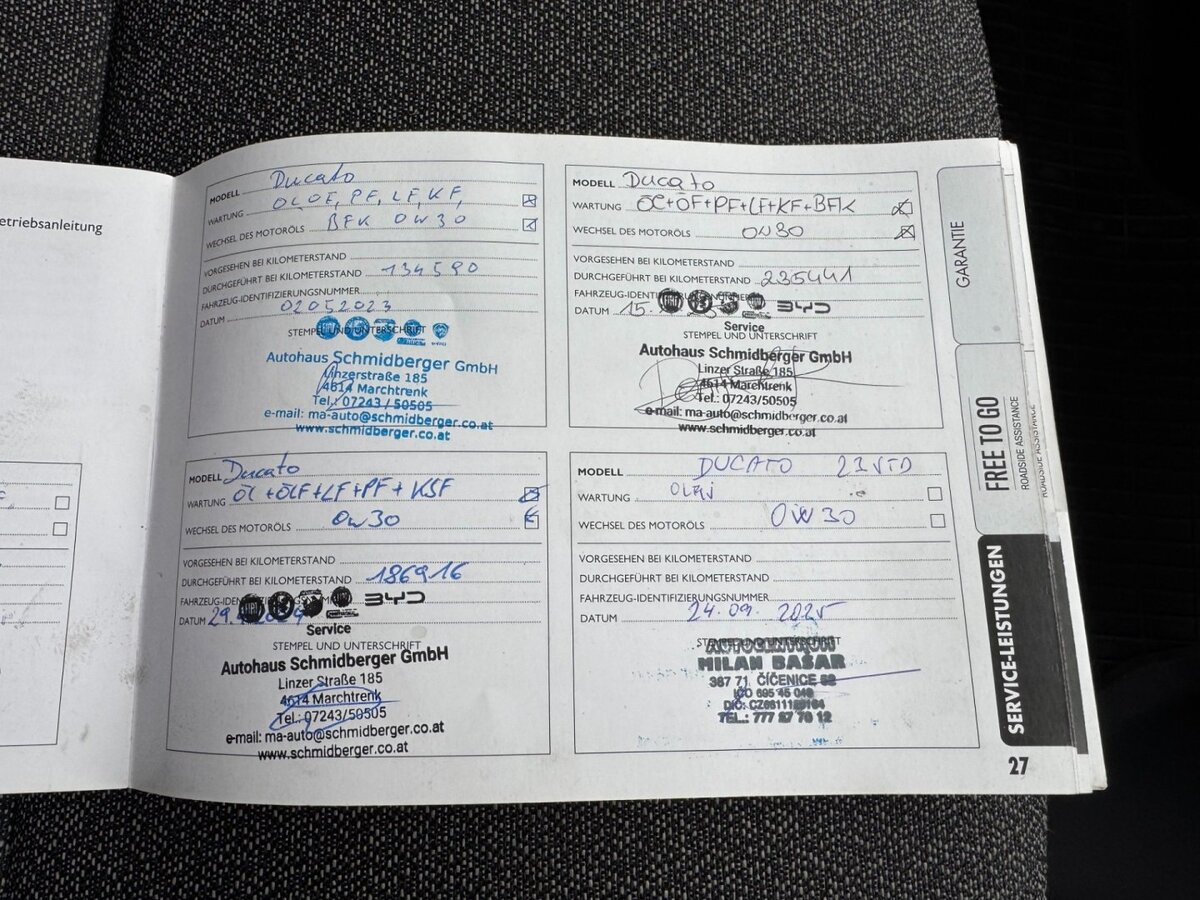 etriebsanleitung
MODELL Ducato
WARTUNG ÖL OF, PF, LF, KF,
BFK 0W30
WECHSEL DES MOTORÖLS
VORGESEHEN BEI KILOMETERSTAND
DURCHGEFÜHRT BEI KILOMETERSTAND 134590
FAHRZEUG-IDENTIFIZIERUNGSNUMMER
DATUM 02052023
STEMPEL UND UNTERSCHRIFT
Autohaus Schmidberger GmbH
Linzerstraße 185
4614 Marchtrenk
Tel.: 07243 / 50505
e-mail: ma-auto@schmidberger.co.at
www.schmidberger.co.at
MODELL Ducato
WARTUNG ÖL+ÖF+PF+LF+KF+BFK
WECHSEL DES MOTORÖLS 0W30
VORGESEHEN BEI KILOMETERSTAND
DURCHGEFÜHRT BEI KILOMETERSTAND 235441
DATUM 15.
BYD
Service
STEMPEL UND UNTERSCHRIFT
Autohaus Schmidberger GmbH
Linzer Straße 185
4614 Marchtrenk
Tel.: 07243/50505
e-mail: ma-auto@schmidberger.co.at
www.schmidberger.co.at
MODELL Ducato
WARTUNG ÖL+ÖLF+LF+PF+KSF
WECHSEL DES MOTORÖLS 0W30
VORGESEHEN BEI KILOMETERSTAND
DURCHGEFÜHRT BEI KILOMETERSTAND 186916
DATUM 29.
BYD
Service
STEMPEL UND UNTERSCHRIFT
Autohaus Schmidberger GmbH
Linzer Straße 185
4614 Marchtrenk
Tel.: 07243/50505
e-mail: ma-auto@schmidberger.co.at
www.schmidberger.co.at
MODELL DUCATO
WARTUNG OLEJ
WECHSEL DES MOTORÖLS 0W30
VORGESEHEN BEI KILOMETERSTAND
DURCHGEFÜHRT BEI KILOMETERSTAND
FAHRZEUG-IDENTIFIZIERUNGSNUMMER
DATUM 24.09. 2025
AUTOCENTRUM
MILAN BAŠAR
387 71 ČÍČENICE
TEL.: 777 87 70 12
GARANTIE
FREE TO GO
ROADSIDE ASSISTANCE
ROADSIDE ASSISTANCE
SERVICE-LEISTUNGEN
27